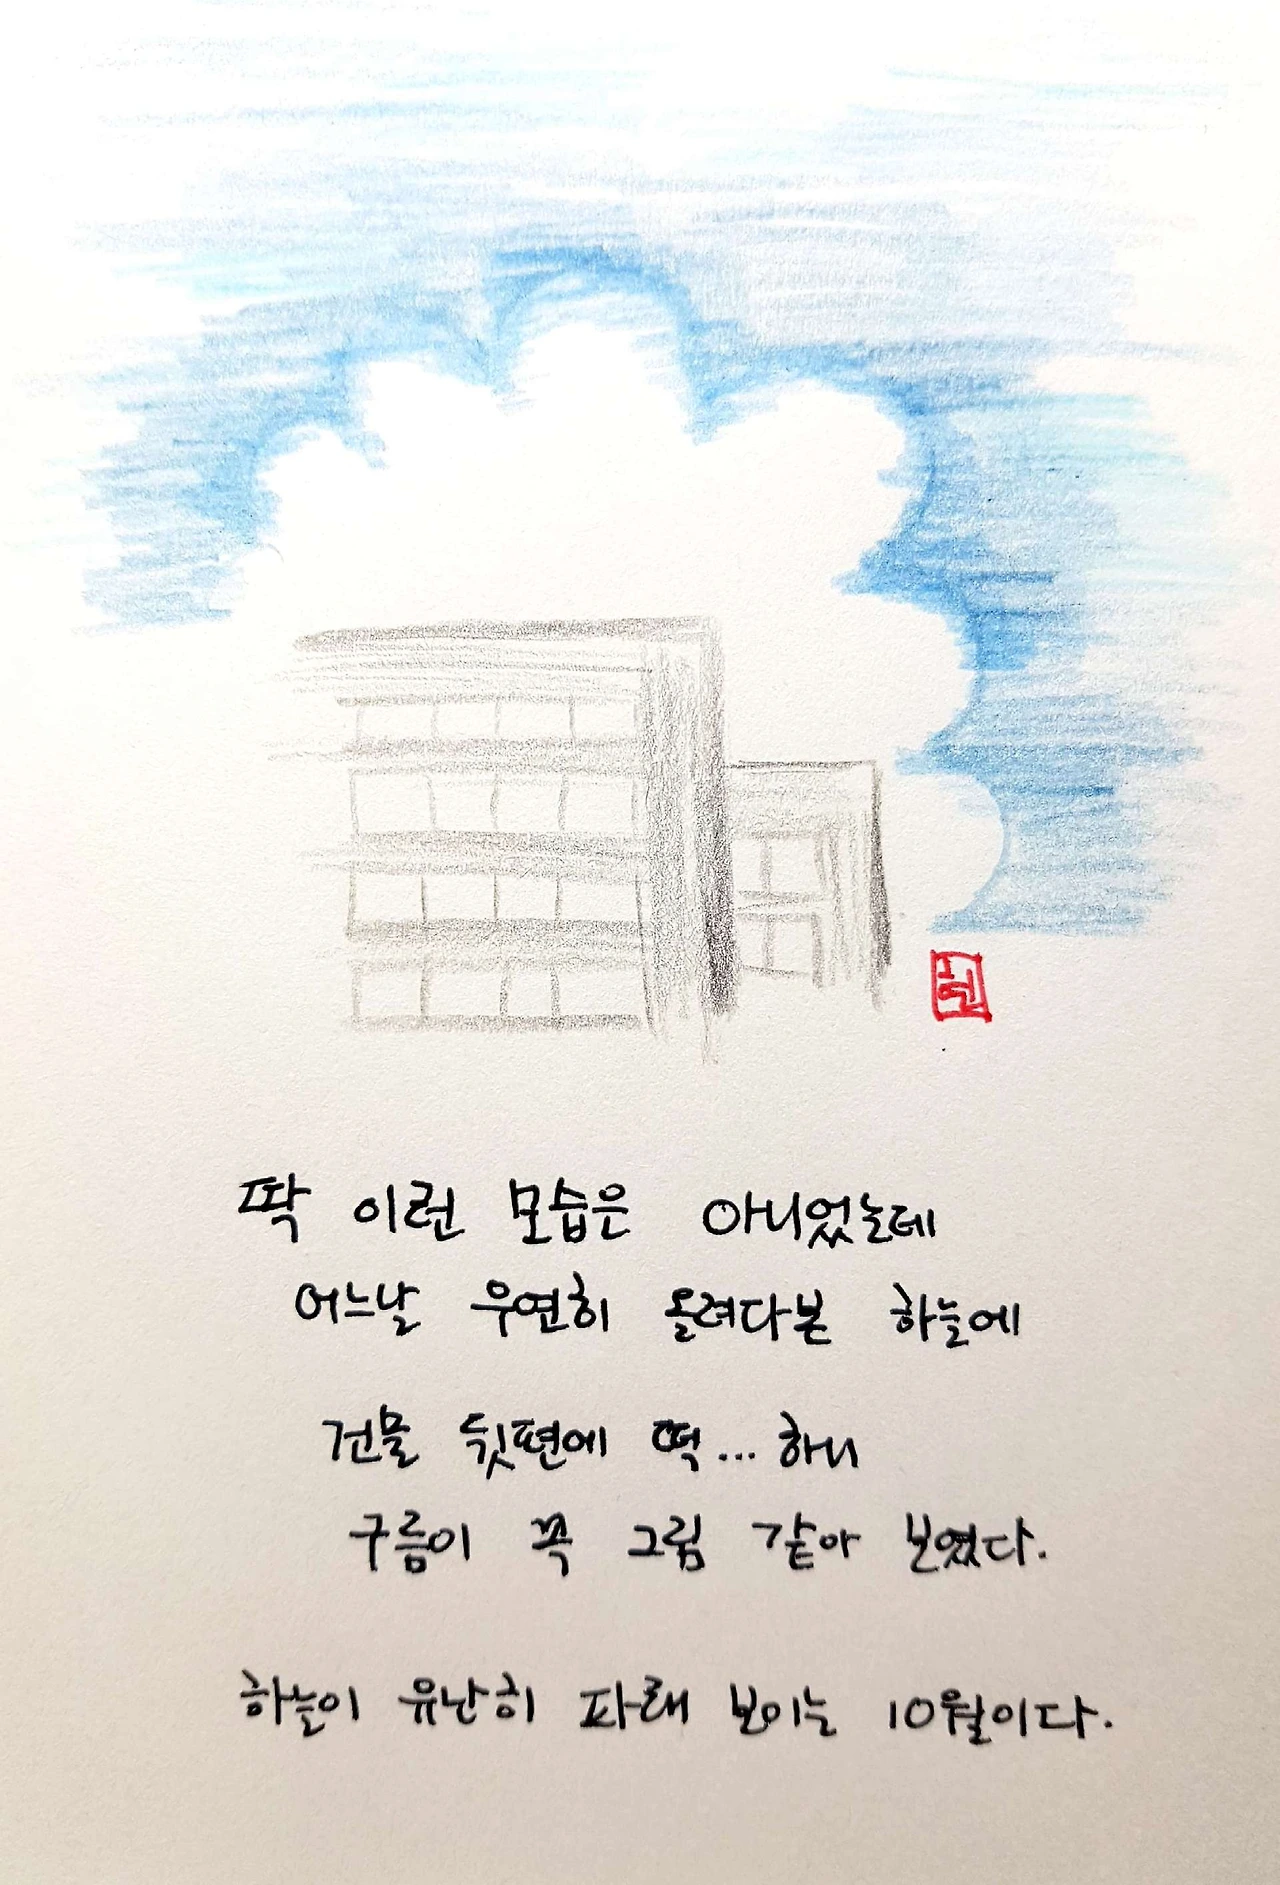 딱 이런 모습은 아니었는데
어느날 우연히 올려다본 하늘에
건물 뒷편에 떡... 하니
구름이 꼭 그림 같아 보였다.
하늘이 유난히 파래 보이는 10월이다.